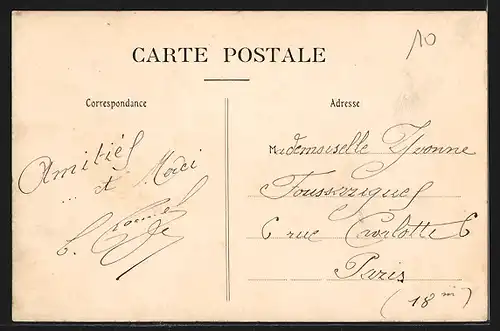 10
CARTE POSTALE
Correspondance
Amitiés
... et Merci
Adresse
Mademoiselle Yvonne
6 rue Cavalotte 6
Paris
(18 m)